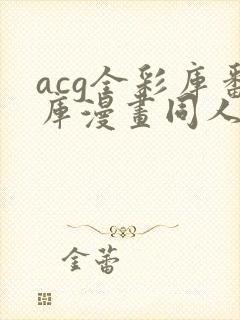 acg全彩库番
库漫畫同人
金蕾